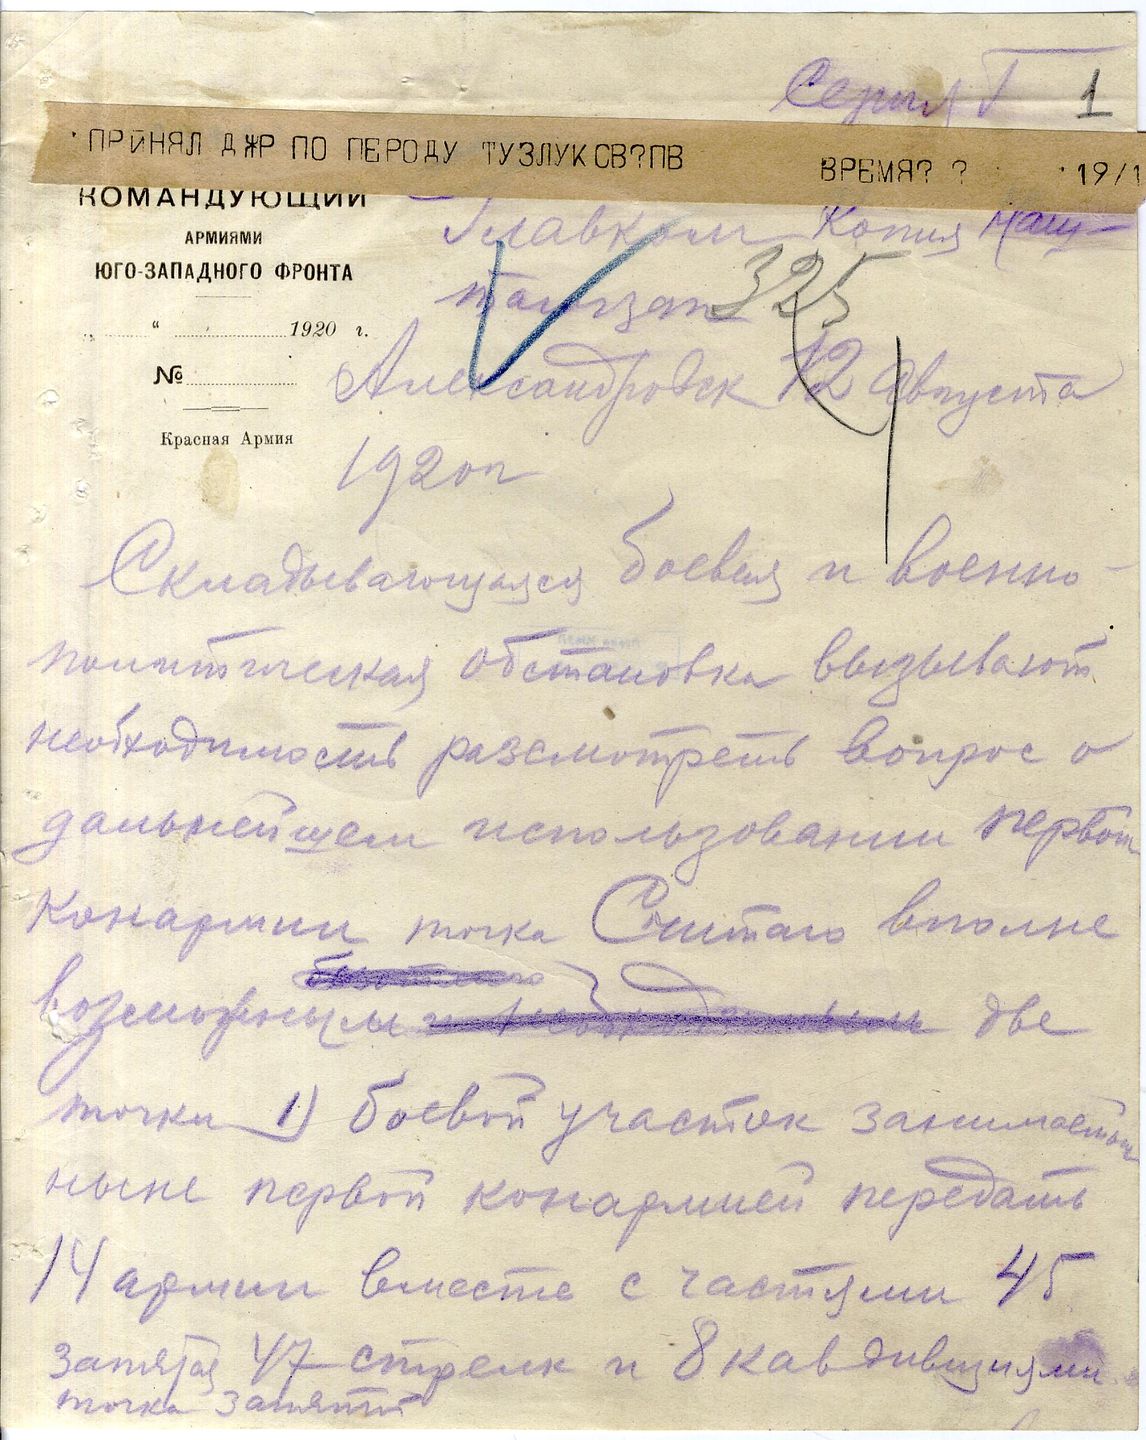 Серия Г 1
ПРИНЯЛ ДЖР ПО ПЕРОДУ ТУЗЛУК СВ?ПВ ВРЕМЯ? ? 19/1
КОМАНДУЮЩИЙ
АРМИЯМИ
ЮГО-ЗАПАДНОГО ФРОНТА
„ “ 1920 г.
№
Красная Армия
Главком Копия Наш-
таюгзап 325
Александровск 12 Августа
1920 г
Складывающаяся боевая и военно-
политическая обстановка вызывают
необходимость разсмотреть вопрос о
дальнейшем использовании первой
конармии точка Считаю вполне
возможным две
точки 1) боевой участок занимаемый
ныне первой конармией передать
14 армии вместе с частями 45
запятая 47 стрелк и 8 кав дивизиями
точка